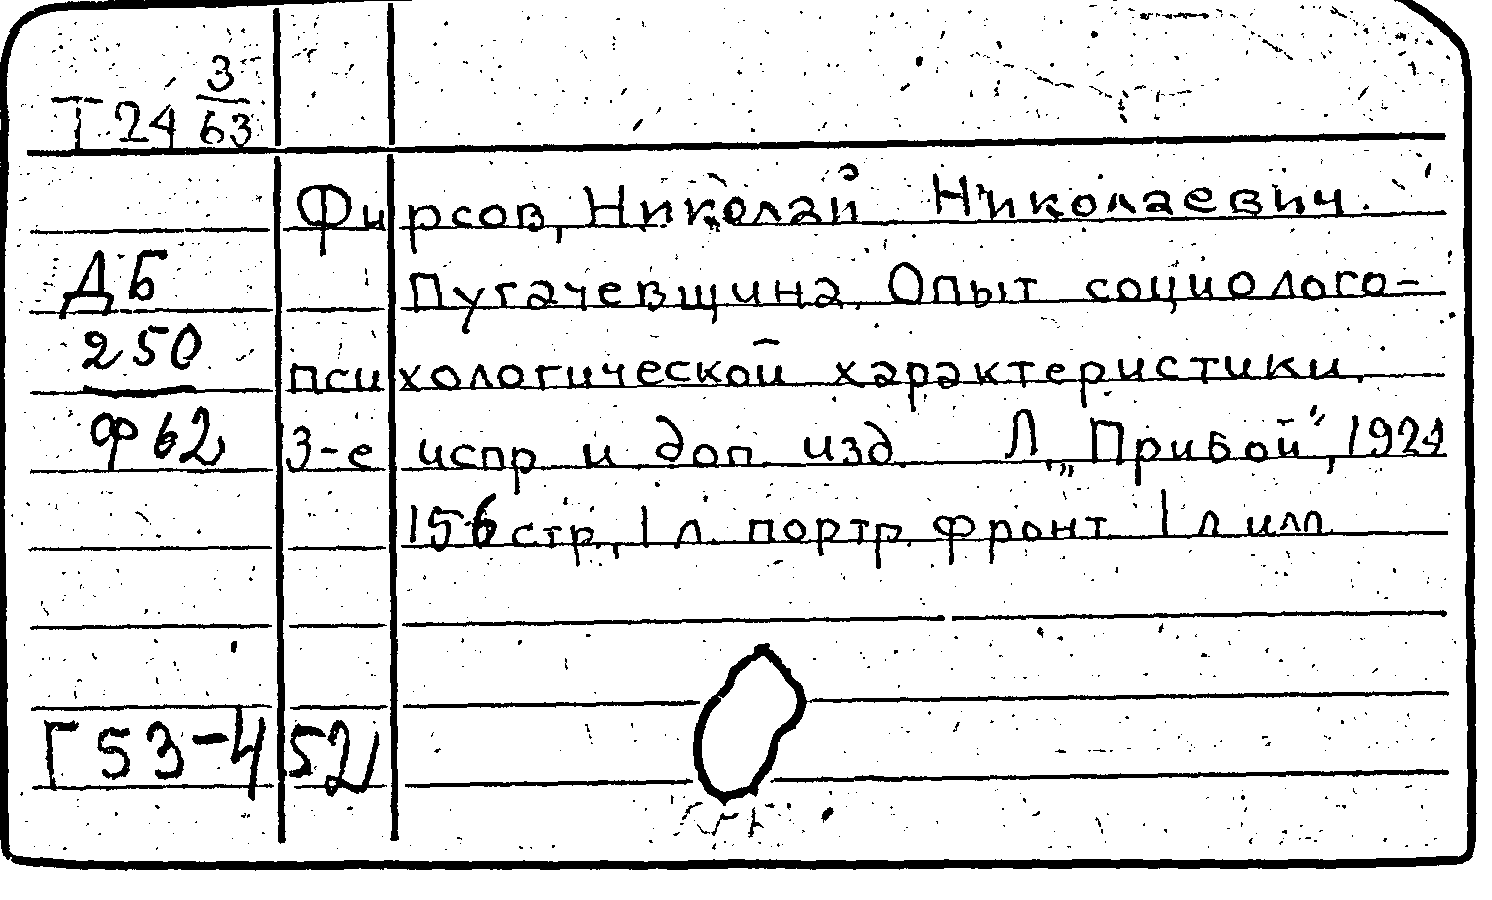 Т 24 3/63
Фирсов, Николай Николаевич.
Пугачевщина. Опыт социолого-
психологической характеристики.
3-е испр и доп изд. Л., „Прибой", 1924
156 стр., 1 л. портр. фронт. 1 л илл
ДБ
250
Ф 62
Г 53-4 52